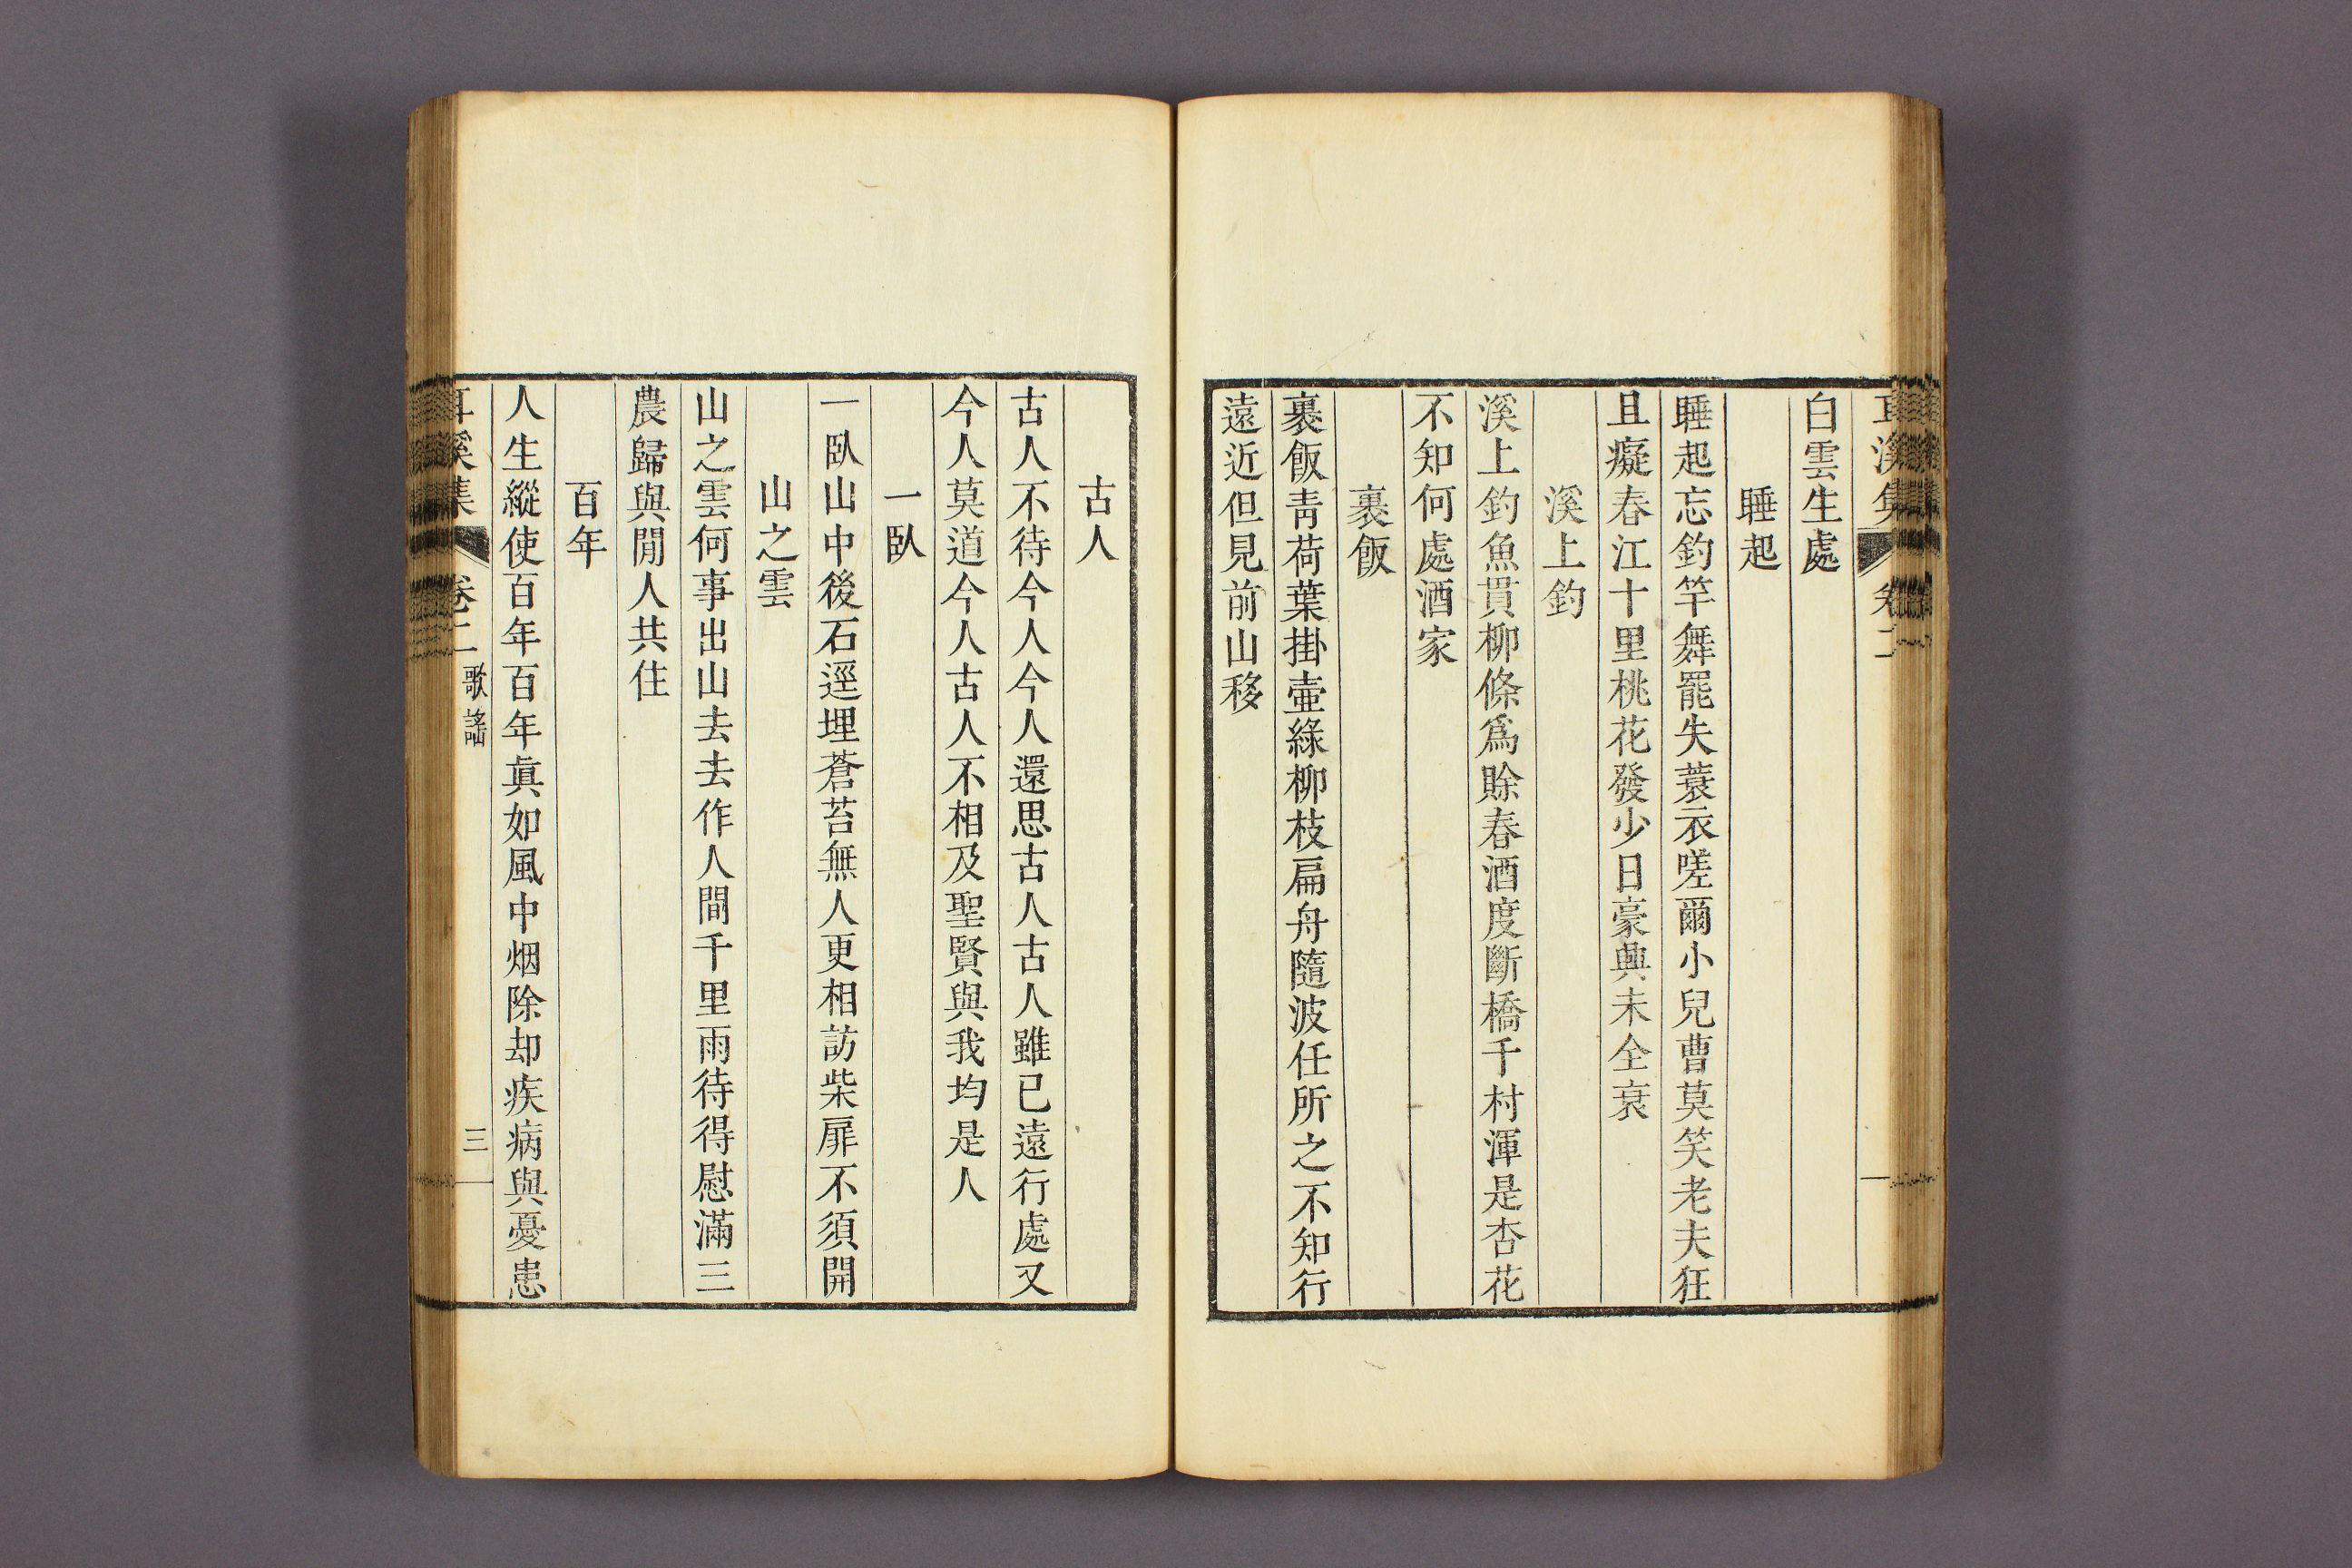 耳溪集 卷二
白雲生處
睡起
睡起忘釣竿舞罷失蓑衣嗟爾小兒曹莫笑老夫狂
且癡春江十里桃花發少日豪興未全衰
溪上釣
溪上釣魚貫柳條爲賒春酒度斷橋千村渾是杏花
不知何處酒家
裹飯
裹飯靑荷葉掛壷綠柳枝扁舟隨波任所之不知行
遠近但見前山移
古人
古人不待今人今人還思古人古人雖已遠行處又
今人莫道今人古人不相及聖賢與我均是人
一臥
一臥山中後石逕埋蒼苔無人更相訪柴扉不須開
山之雲
山之雲何事出山去去作人間千里雨待得慰滿三
農歸與閒人共住
百年
人生縱使百年百年眞如風中烟除却疾病與憂患
耳溪集 卷二 歌謠 三